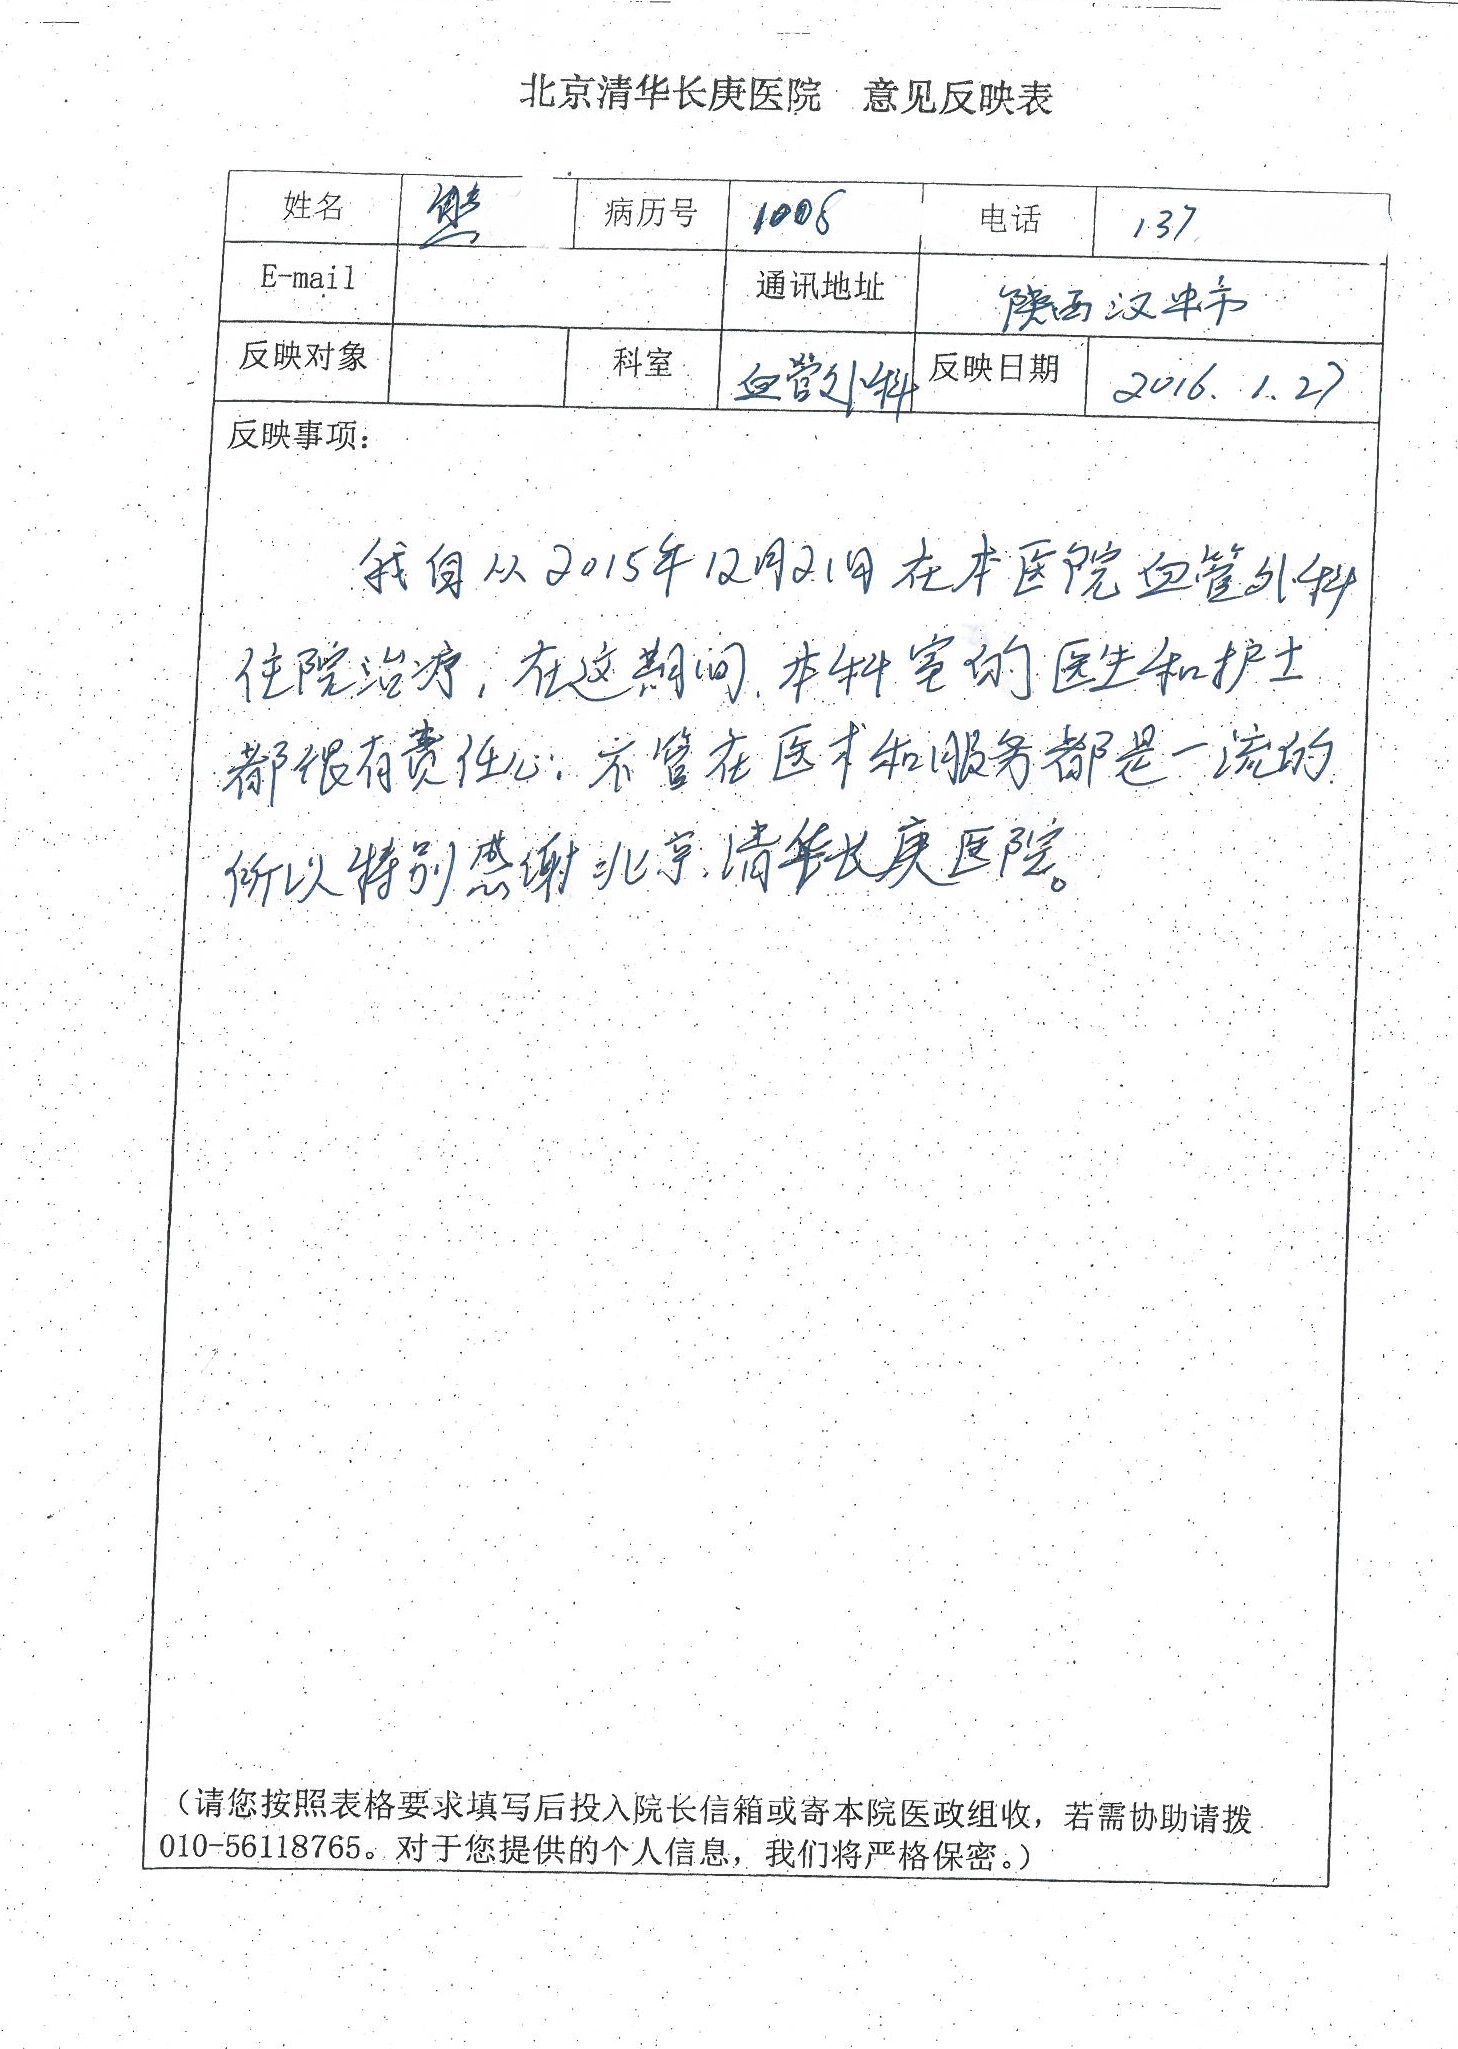 北京清华长庚医院 意见反映表
姓名 熊 病历号 1008 电话 137
E-mail 通讯地址 陕西汉中市
反映对象 科室 血管外科 反映日期 2016.1.27
反映事项：
我自从2015年12月21日在本医院血管外科
住院治疗，在这期间，本科室的医生和护士
都很有责任心，不管在医术和服务都是一流的
所以特别感谢北京清华长庚医院。
（请您按照表格要求填写后投入院长信箱或寄本院医政组收，若需协助请拨
010-56118765。对于您提供的个人信息，我们将严格保密。）